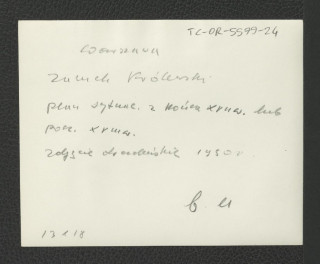 TC-DR-5599-24
Warszawa
Zamek Królewski
plan sytuac. z końca XVII w. lub
pocz. XVIII w.
zdjęcie drezdeńskie 1950 r.
13 x 18